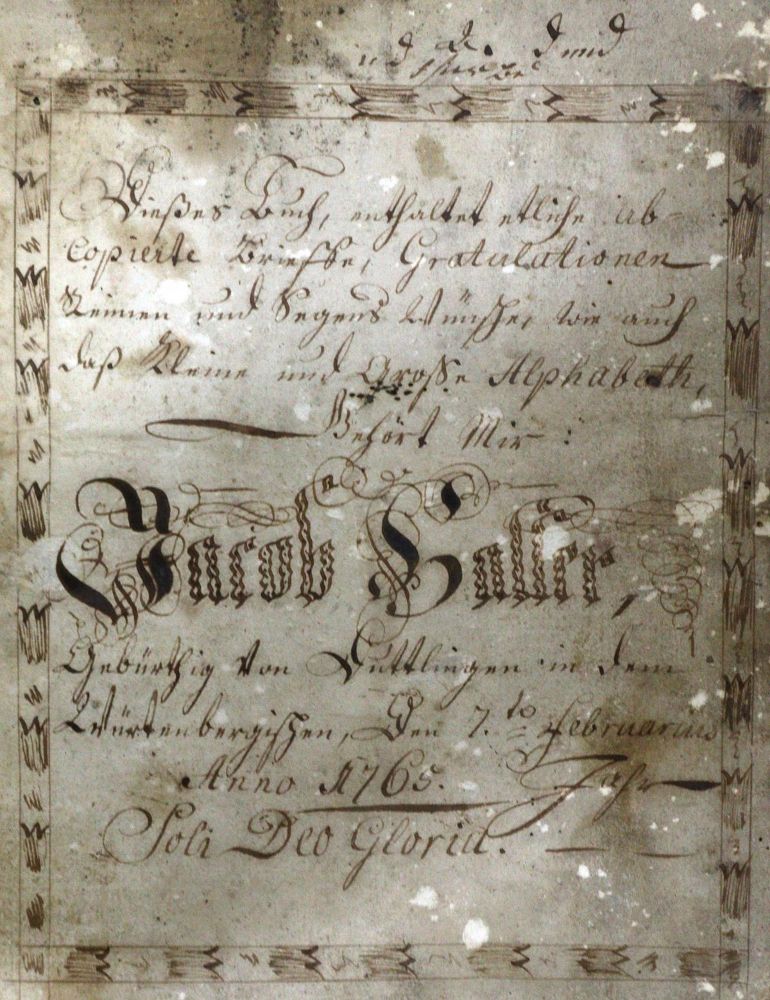 und
Dießes Buch, enthaltet etliche ab=
copierte Brieffe, Gratulationen
Reimen und Segens Wünsche, wie auch
daß Kleine und Große Alphabeth,
Gehört Mir:
Jacob Haller,
Gebürthig Von Duttlingen in dem
Würtenbergischen, Den 7.to Februarius
Anno 1765. Jahr
Soli Deo Gloria.